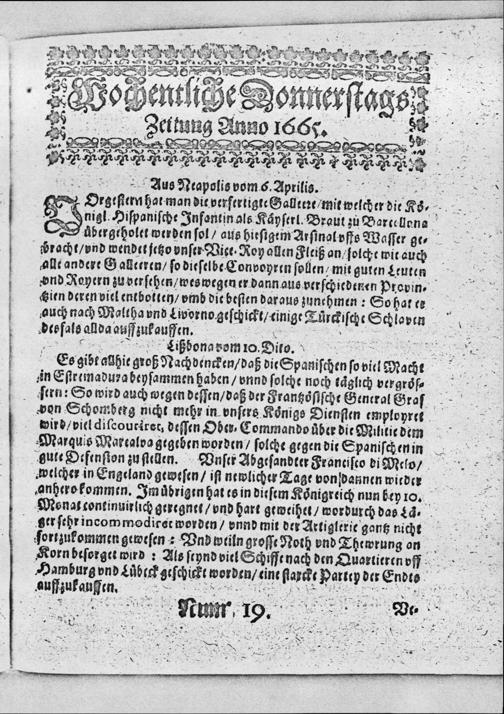 Wochentliche Donnerstags
Zeitung Anno 1665.
Aus Neapolis vom 6. Aprilis.
VOrgestern hat man die verfertigte Gallere/ mit welcher die Kö-
nigl. Hispanische Infantin als Käyserl. Braut zu Barcellona
übergeholet werden sol/ aus hiesigem Arsinal uffs Wasser ge-
bracht/ und wendet jetzo unser Vice-Roy allen Fleiß an/ solche wie auch
alle andere Galleren/ so dieselbe Convoyren sollen/ mit guten Leuten
und Royern zu versehen/ weswegen er dann aus verschiedenen Provin-
tzien deren viel entbotten/ umb die besten daraus zunehmen: So hat er
auch nach Maltha und Livorno geschickt/ einige Türckische Sclaven
desfals allda auffzukauffen.
Lißbona vom 10. Dito.
Es gibt allhie groß Nachdencken/ daß die Spanischen so viel Macht
in Estremadura beysammen haben/ unnd solche noch täglich vergrös-
sern: So wird auch wegen dessen/ daß der Frantzösische General Graf
von Schomberg nicht mehr in unsers Königs Diensten employret
wird/ viel discouriret, dessen Ober-Commando über die Militie dem
Marquis Marcalva gegeben worden/ solche gegen die Spanischen in
gute Defension zu stellen. Unser Abgesandter Francisco di Melo/
welcher in Engeland gewesen/ ist newlicher Tage von dannen wieder
anhero kommen. Im übrigen hat es in diesem Königreich nun bey 10.
Monat continuirlich geregnet/ und hart geweihet/ wordurch das Lä-
ger sehr incommodiret worden/ unnd mit der Artiglerie gantz nicht
fortzukommen gewesen: Und weiln grosse Noth und Thewrung an
Korn besorget wird: Als seynd viel Schiffe nach den Quartieren uff
Hamburg und Lübeck geschickt worden/ eine starcke Partey der Endts
auffzukauffen.
Num. 19. We-